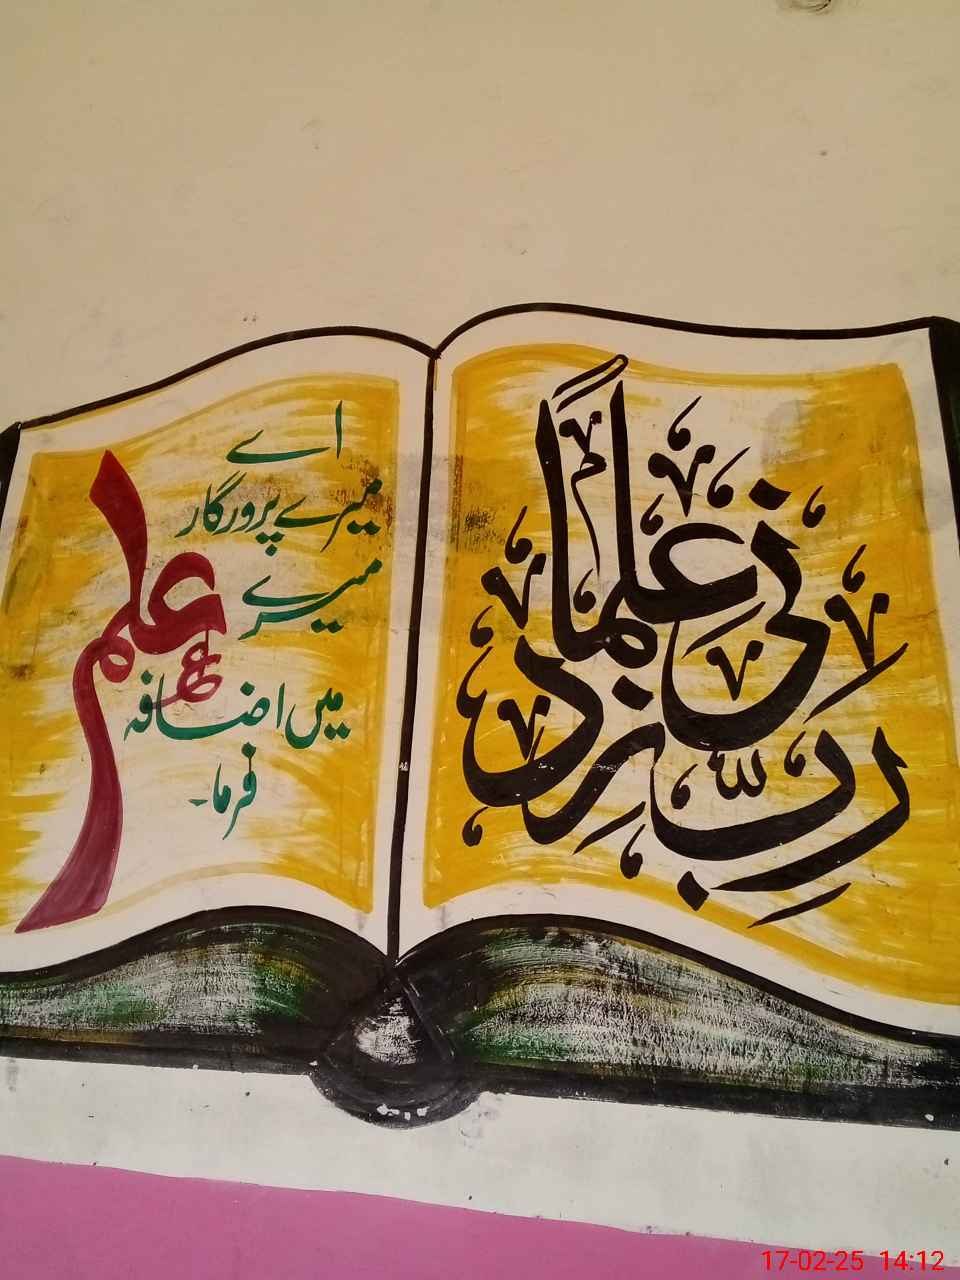 رَبِّ زِدْنِي عِلْمًا
اے
میرے پرورگار
میرے علم
میں اضافہ
فرما۔
17-02-25 14:12